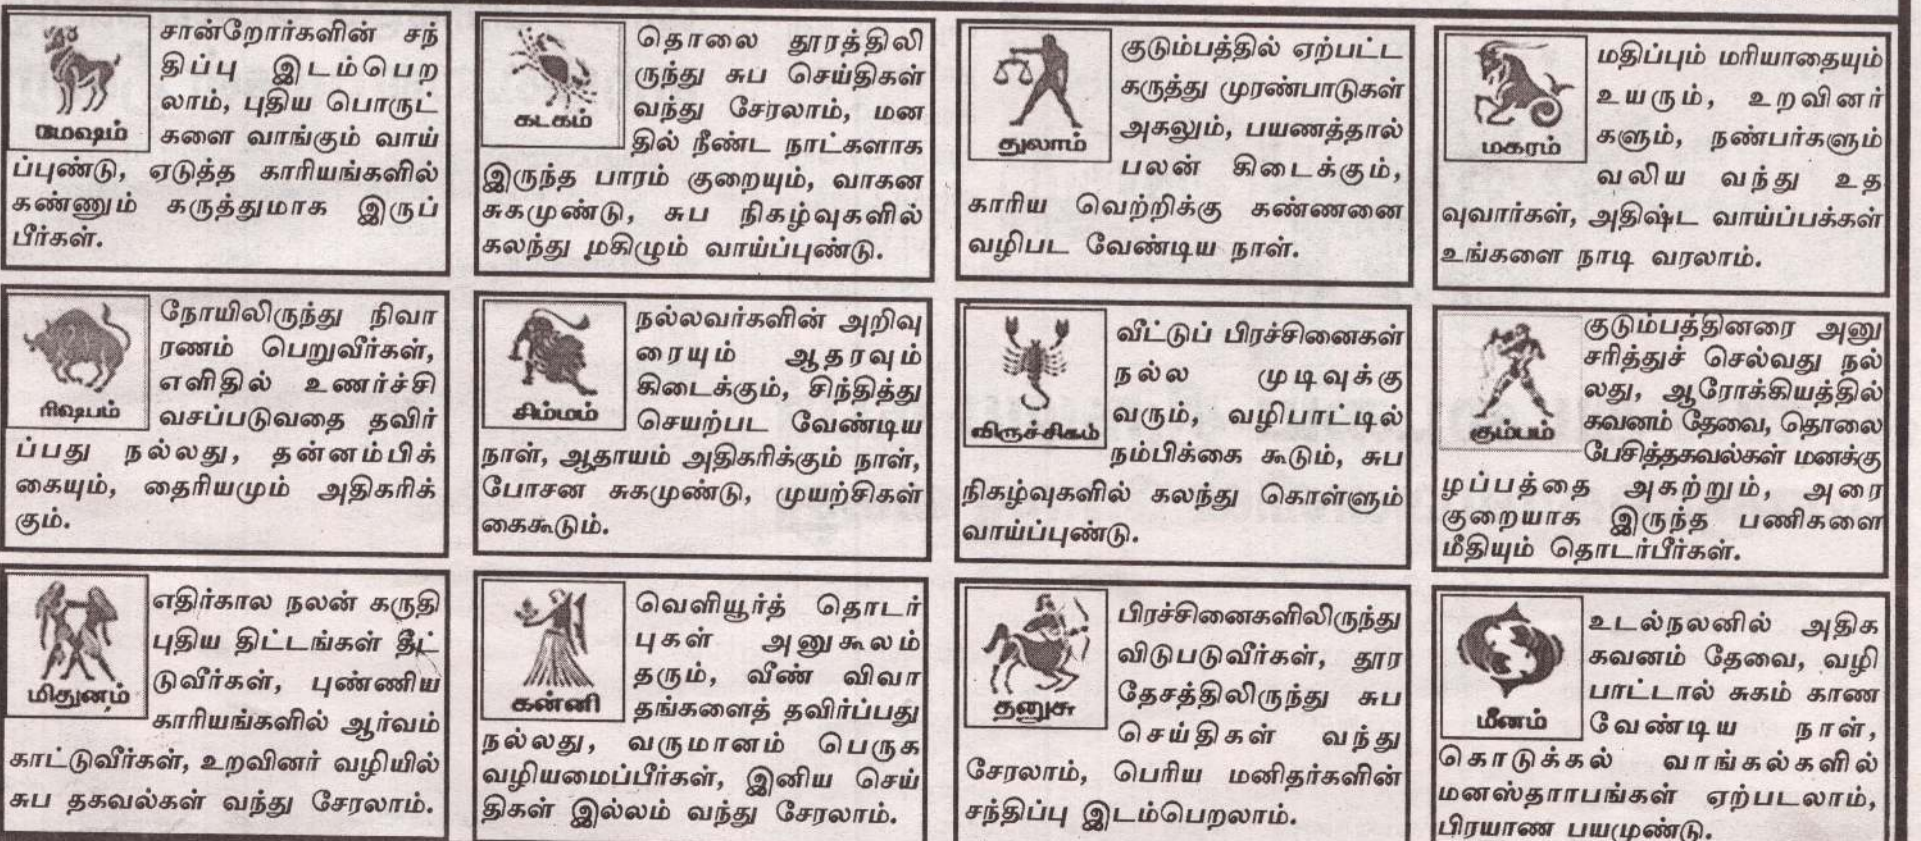 சான்றோர்களின் சந்
திப்பு இடம்பெற
லாம், புதிய பொருட்
களை வாங்கும் வாய்
மேஷம்
ப்புண்டு, ஏடுத்த காரியங்களில்
கண்ணும் கருத்துமாக இருப்
பீர்கள்.
நோயிலிருந்து நிவா
ரணம் பெறுவீர்கள்,
எளிதில் உணர்ச்சி
வசப்படுவதை தவிர்
ரிஷபம்
ப்பது நல்லது, தன்னம்பிக்
கையும், தைரியமும் அதிகரிக்
கும்.
எதிர்கால நலன் கருதி
புதிய திட்டங்கள் தீட்
டுவீர்கள், புண்ணிய
காரியங்களில் ஆர்வம்
மிதுனம்
காட்டுவீர்கள், உறவினர் வழியில்
சுப தகவல்கள் வந்து சேரலாம்.
தொலை தூரத்திலி
ருந்து சுப செய்திகள்
வந்து சேரலாம், மன
தில் நீண்ட நாட்களாக
கடகம்
இருந்த பாரம் குறையும், வாகன
சுகமுண்டு, சுப நிகழ்வுகளில்
கலந்து மகிழும் வாய்ப்புண்டு.
நல்லவர்களின் அறிவு
ரையும் ஆதரவும்
கிடைக்கும், சிந்தித்து
செயற்பட வேண்டிய
சிம்மம்
நாள், ஆதாயம் அதிகரிக்கும் நாள்,
போசன சுகமுண்டு, முயற்சிகள்
கைகூடும்.
வெளியூர்த் தொடர்
புகள் அனுகூலம்
தரும், வீண் விவா
தங்களைத் தவிர்ப்பது
கன்னி
நல்லது, வருமானம் பெருக
வழியமைப்பீர்கள், இனிய செய்
திகள் இல்லம் வந்து சேரலாம்.
குடும்பத்தில் ஏற்பட்ட
கருத்து முரண்பாடுகள்
அகலும், பயணத்தால்
துலாம்
பலன் கிடைக்கும்,
காரிய வெற்றிக்கு கண்ணனை
வழிபட வேண்டிய நாள்.
வீட்டுப் பிரச்சினைகள்
நல்ல முடிவுக்கு
வரும், வழிபாட்டில்
விருச்சிகம்
நம்பிக்கை கூடும், சுப
நிகழ்வுகளில் கலந்து கொள்ளும்
வாய்ப்புண்டு.
பிரச்சினைகளிலிருந்து
விடுபடுவீர்கள், தூர
தேசத்திலிருந்து சுப
தனுசு
செய்திகள் வந்து
சேரலாம், பெரிய மனிதர்களின்
சந்திப்பு இடம்பெறலாம்.
மதிப்பும் மரியாதையும்
உயரும், உறவினர்
களும், நண்பர்களும்
மகரம்
வலிய வந்து உத
வுவார்கள், அதிஷ்ட வாய்ப்பக்கள்
உங்களை நாடி வரலாம்.
குடும்பத்தினரை அனு
சரித்துச் செல்வது நல்
லது, ஆரோக்கியத்தில்
கவனம் தேவை, தொலை
கும்பம்
பேசித்தகவல்கள் மனக்கு
ழப்பத்தை அகற்றும், அரை
குறையாக இருந்த பணிகளை
மீதியும் தொடர்பீர்கள்.
உடல்நலனில் அதிக
கவனம் தேவை, வழி
பாட்டால் சுகம் காண
மீனம்
வேண்டிய நாள்,
கொடுக்கல் வாங்கல்களில்
மனஸ்தாாபங்கள் ஏற்படலாம்,
பிரயாண பயமுண்டு.